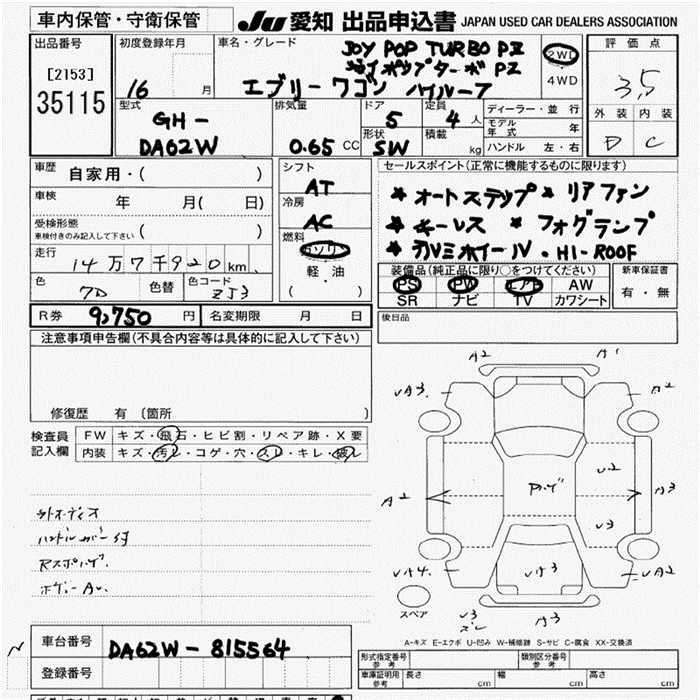 車内保管・守衛保管
JU 愛知 出品申込書 JAPAN USED CAR DEALERS ASSOCIATION
出品番号
[2153]
35115
初度登録年月
16 月
車名・グレード
JOY POP TURBO PZ
ジョイポップターボ PZ
エブリーワゴン ハイルーフ
2WD
4WD
評価点
3.5
外装 内装
D C
型式
GH-
DA62W
排気量
0.65 CC
ドア
5
定員
4 人
形状
SW
積載
kg
ディーラー・並行
モデル
年式 年
ハンドル 左・右
車歴
自家用・( )
車検
年 月( 日)
受検形態
車検付きのみ記入して下さい ( )
走行
14万7千920km
色
7D
色替
色コード
ZJ3
シフト
AT
冷房
AC
燃料
ガソリン
軽・油
( )
セールスポイント(正常に機能するものに限ります)
★ オートステップ ★ リアファン
★ キーレス ★ フォグランプ
★ アルミホイール・HI-ROOF
装備品(純正品に限り○をつけてください)
PS PW エアB AW
SR ナビ TV カワシート
新車保証書
有・無
R券 9,750 円
名変期限 月 日
後日品
注意事項申告欄(不具合内容等は具体的に記入して下さい)
修復歴 有 (箇所 )
検査員
記入欄
FW キズ・飛石・ヒビ割・リペア跡・X要
内装 キズ・汚レ・コゲ・穴・スレ・キレ・破レ
A2 A1
UA3. A2
A2 U2 A3
U3
UA4. UA3 UA2
U3 A3
スペア
A-キズ E-エクボ U-凹み W-補修跡 S-サビ C-腐食 XX-交換済
車台番号 DA62W-815564
登録番号
形式指定番号
参考
類別区分番号
参考
車庫証明用
参考
長さ cm 幅 cm 高さ cm